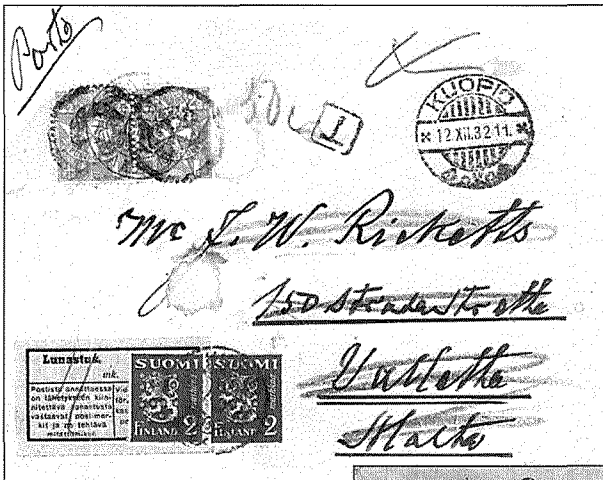 Porto
50c
1
KUOPIO
12.XII.32 11.
Mr J. W. Ricketts
150 Strada Stretta
Valletta
Malta
Lunastuk.
mk.
Postista annettaessa
on lähetykseen kiin-
nitettävä lunastusta
vastaavat posimer-
kit ja ne tehtävä
mitättömiksi.
SUOMI
FINLAND 2
SUOMI
FINLAND 2